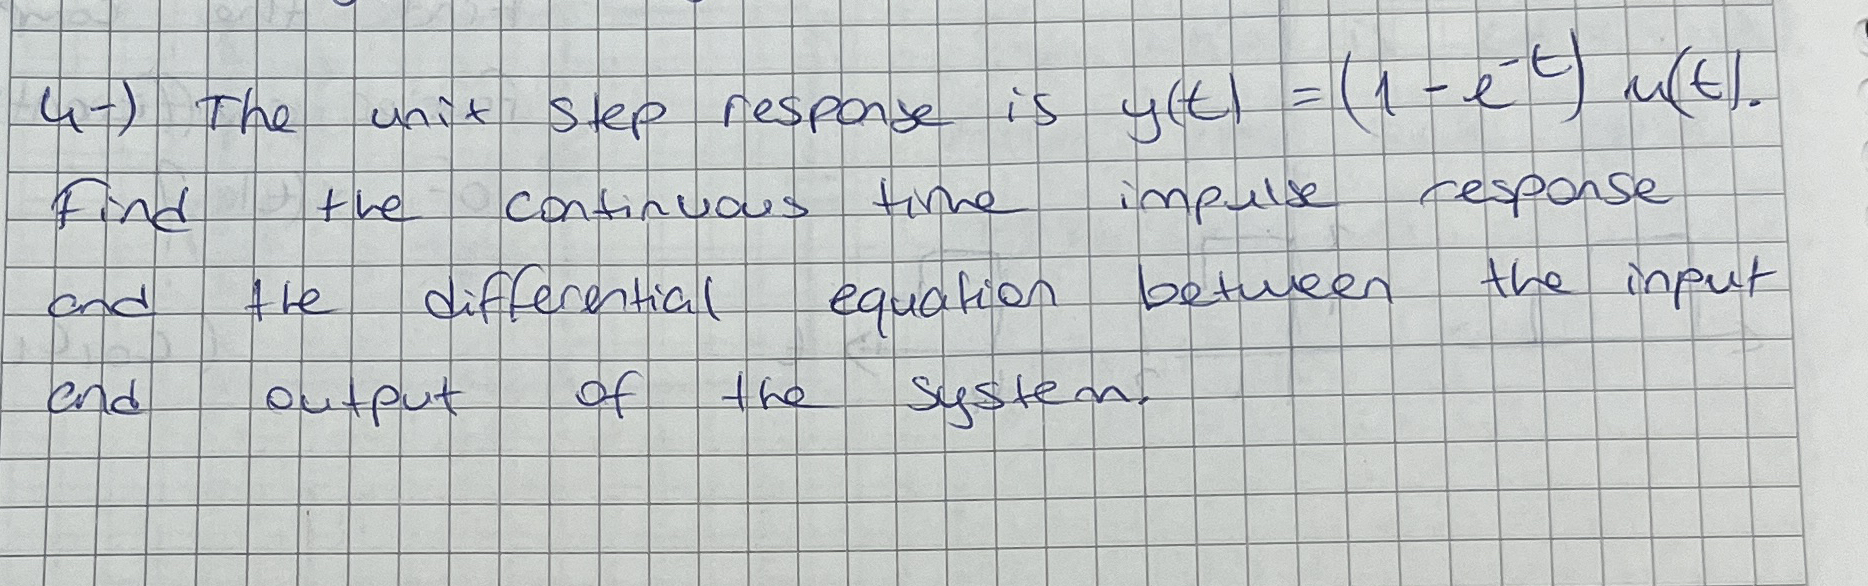 4-) The unit step response is y(t) = (1 - e^-t) u(t).
Find the continuous time impulse response
and the differential equation between the input
and output of the system.